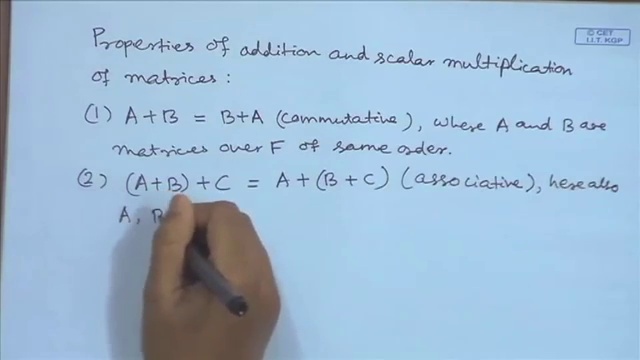 © CET
I.I.T. KGP
Properties of addition and scalar multiplication
of matrices :
(1) A+B = B+A (commutative), where A and B are
matrices over F of same order.
(2) (A+B)+C = A+(B+C) (associative), here also
A, B